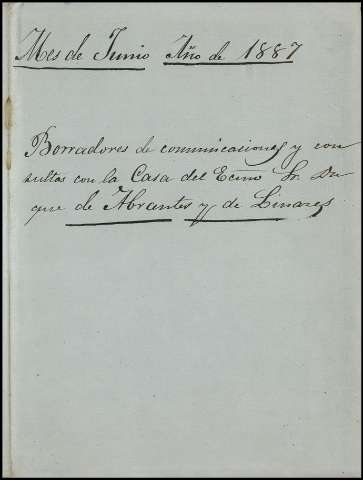 Mes de Junio Año de 1887
Borradores de comunicaciones y con
sultas con la Casa del Ecmo Sr. Du
que de Abrantes y de Linares